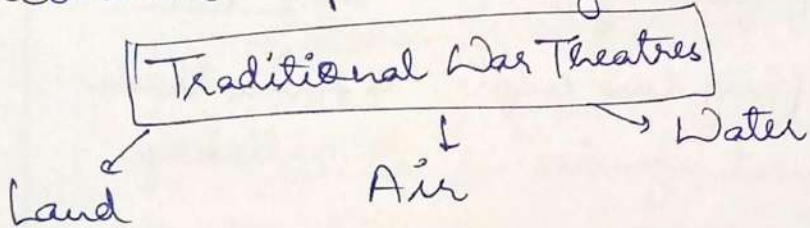 Traditional War Theatres
Land
Air
Water